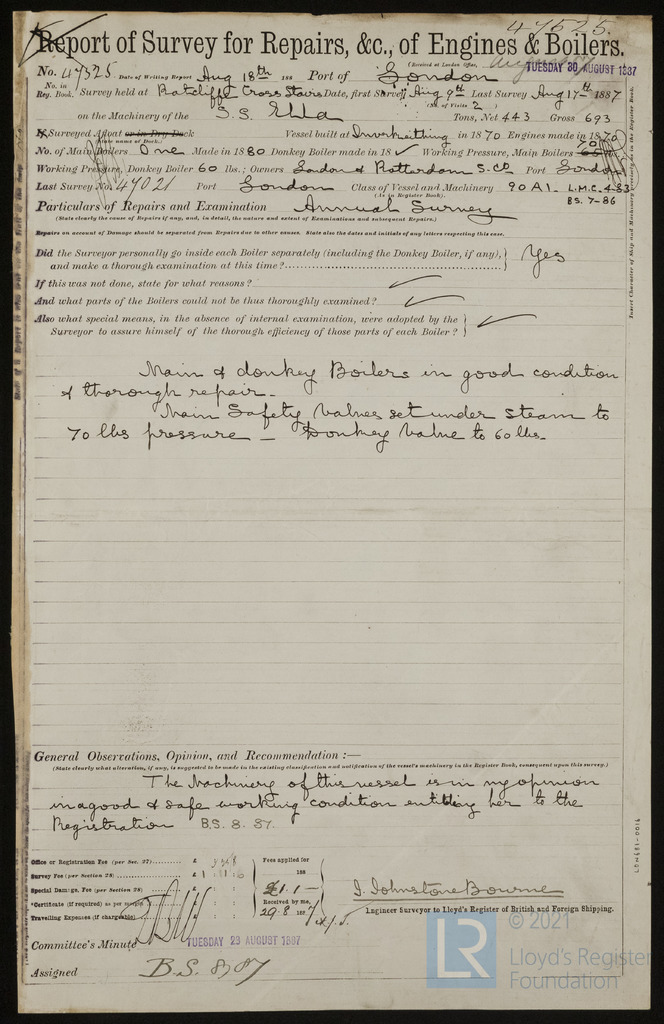 47525.
Report of Survey for Repairs, &c., of Engines & Boilers.
(Received at London Office, TUESDAY 30 AUGUST 1887
No. 47325 Date of Writing Report Aug 18th 188 Port of London
No. in Reg. Book. Survey held at Ratcliffe Cross Stairs Date, first Survey Aug 9th Last Survey Aug 17th 1887
(No. of Visits 2)
on the Machinery of the S.S. Ehla Tons, Net 443 Gross 693
Surveyed Afloat or in Dry Dock Vessel built at Inverkeithing in 1870 Engines made in 1870
(State name of Dock.)
No. of Main Boilers One Made in 1880 Donkey Boiler made in 18 ✓ Working Pressure, Main Boilers 70
Working Pressure, Donkey Boiler 60 lbs.; Owners London & Rotterdam S.Co. Port London
Last Survey No. 47021 Port London Class of Vessel and Machinery 90A1 L.M.C. 4-83
(As in Register Book). BS. 7-86
Particulars of Repairs and Examination Annual Survey
(State clearly the cause of Repairs if any, and, in detail, the nature and extent of Examinations and subsequent Repairs.)
Repairs on account of Damage should be separated from Repairs due to other causes. State also the dates and initials of any letters respecting this case.
Did the Surveyor personally go inside each Boiler separately (including the Donkey Boiler, if any), and make a thorough examination at this time? Yes
If this was not done, state for what reasons? ✓
And what parts of the Boilers could not be thus thoroughly examined? ✓
Also what special means, in the absence of internal examination, were adopted by the Surveyor to assure himself of the thorough efficiency of those parts of each Boiler? ✓
Main & donkey Boilers in good condition
& thorough repair.
Main Safety Valves set under steam to
70 lbs pressure — Donkey Valve to 60 lbs.
General Observations, Opinion, and Recommendation :—
(State clearly what alteration, if any, is suggested to be made in the existing classification and notification of the vessel's machinery in the Register Book, consequent upon this survey.)
The Machinery of this vessel is in my opinion
in a good & safe working condition entitling her to the
Registration B.S. 8. 87.
Office or Registration Fee (per Sec. 27) £ Fees applied for
Survey Fee (per Section 28) £ 1 : 11 : 6 188
Special Damage Fee (per Section 28) £ £1.1 —
Certificate (if required) as per Received by me,
Travelling Expenses (if chargeable) 29.8 1887
I. Johnstone Bourne
Engineer Surveyor to Lloyd's Register of British and Foreign Shipping.
Committee's Minute TUESDAY 23 AUGUST 1887
Assigned B.S. 8,87
LON481-0016
LR
© 2021
Lloyd's Register
Foundation